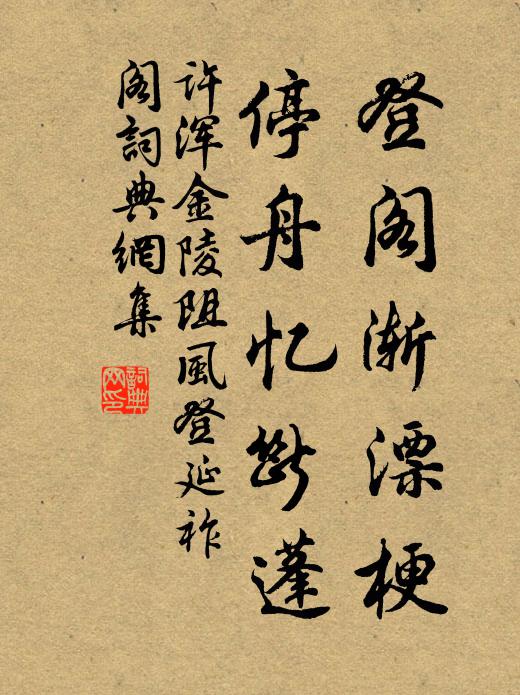 登阁渐漂梗
停舟忆断蓬
许浑金陵阻風登延祚
阁詞典網集
詞典网印